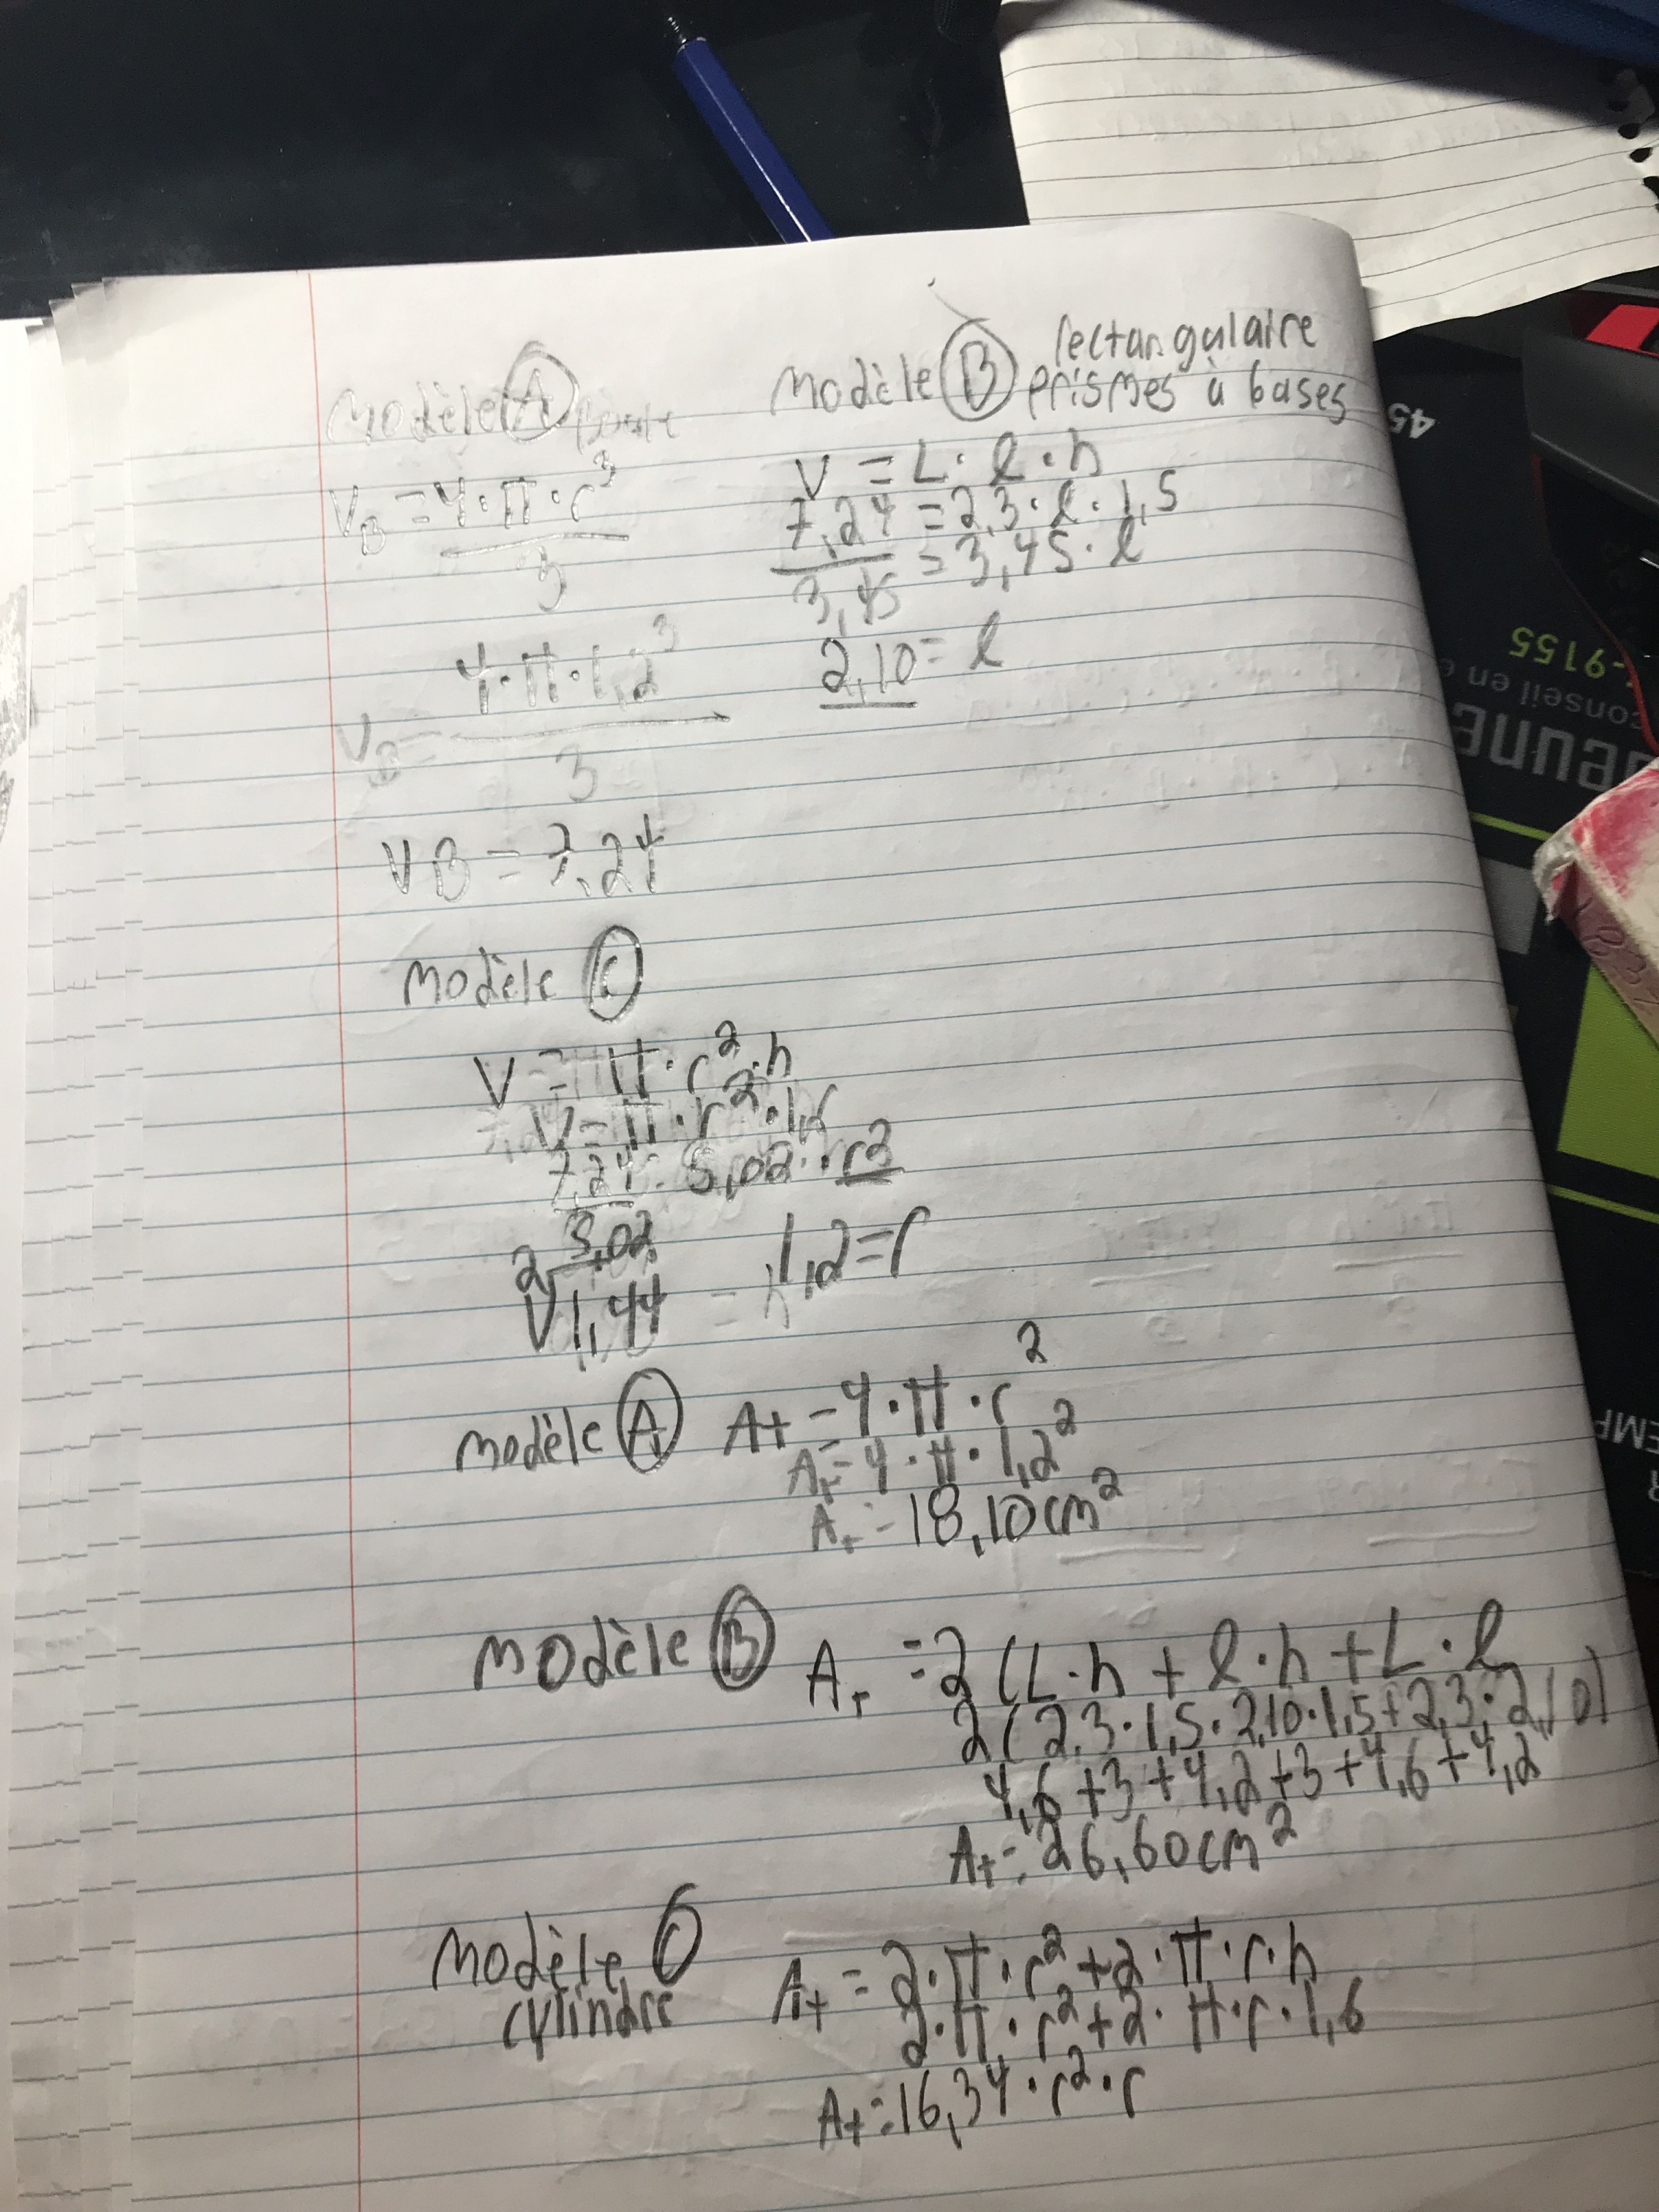 Modèle A boule
V_B = 4·π·r³
3
4·π·1,2³
V_B =
3
VB = 7,24
Modèle B rectangulaire
prismes à bases
V = L·l·h
7,24 = 2,3·l·1,5
3,45 = 3,45·l
2,10 = l
Modèle C
V = π·r²·h
V = π·r²·1,6
7,24 = 5,02·r²
5,02
²√1,44 = 1,2 = r
modèle A At = 4·π·r²
At = 4·π·1,2²
At = 18,10cm²
modèle B At = 2(L·h + l·h + L·l
2(2,3·1,5·2,10·1,5+2,3·2,10)
4,6+3+4,2+3+4,6+4,2
At = 26,60cm²
modèle C
cylindre
At = 2·π·r²+2·π·r·h
2·π·r²+2·π·r·1,6
At = 16,34·r²·r
45
-9155
conseil en
jeune
EMP
R